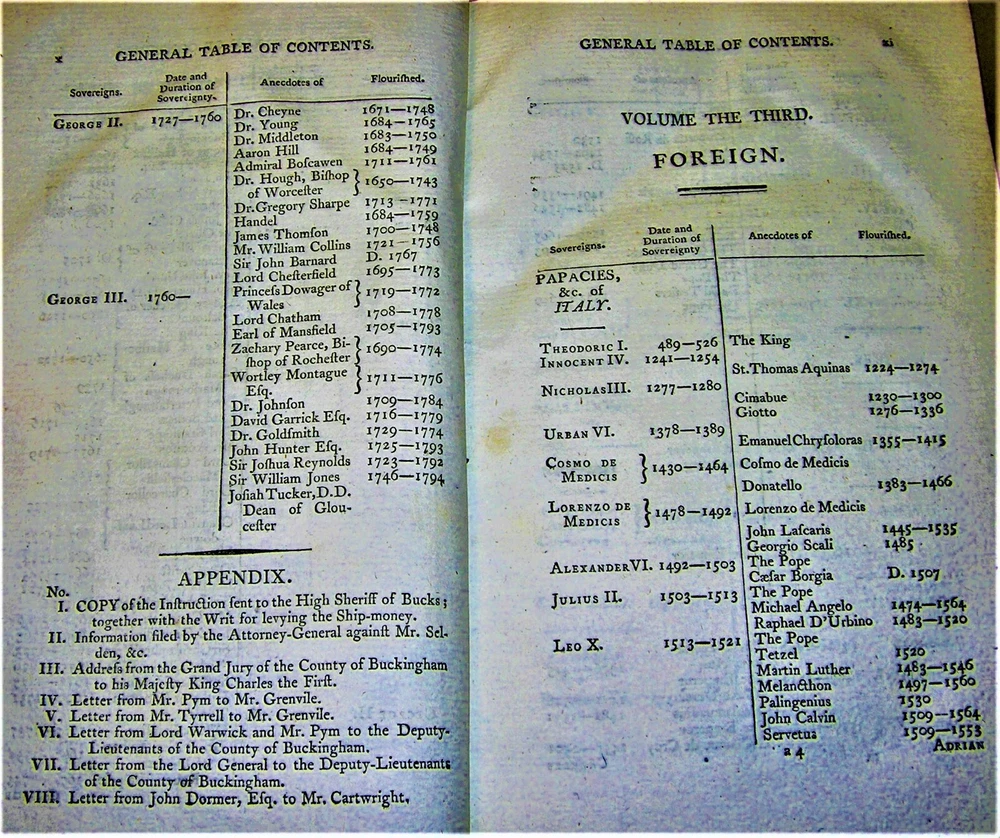 x GENERAL TABLE OF CONTENTS.
Sovereigns. Date and Duration of Sovereignty. Anecdotes of Flouriſhed.
GEORGE II. 1727—1760 Dr. Cheyne 1671—1748
Dr. Young 1684—1765
Dr. Middleton 1683—1750
Aaron Hill 1684—1749
Admiral Boſcawen 1711—1761
Dr. Hough, Biſhop
of Worceſter } 1650—1743
Dr. Gregory Sharpe 1713—1771
Handel 1684—1759
James Thomſon 1700—1748
Mr. William Collins 1721—1756
Sir John Barnard D. 1767
Lord Cheſterfield 1695—1773
GEORGE III. 1760— Princeſs Dowager of
Wales } 1719—1772
Lord Chatham 1708—1778
Earl of Mansfield 1705—1793
Zachary Pearce, Bi-
ſhop of Rocheſter } 1690—1774
Wortley Montague
Eſq. } 1711—1776
Dr. Johnſon 1709—1784
David Garrick Eſq. 1716—1779
Dr. Goldſmith 1729—1774
John Hunter Eſq. 1725—1793
Sir Joſhua Reynolds 1723—1792
Sir William Jones 1746—1794
Joſiah Tucker, D.D.
Dean of Glou-
ceſter
APPENDIX.
No.
I. COPY of the Inſtruction ſent to the High Sheriff of Bucks;
together with the Writ for levying the Ship-money.
II. Information filed by the Attorney-General againſt Mr. Sel-
den, &c.
III. Addreſs from the Grand Jury of the County of Buckingham
to his Majeſty King Charles the Firſt.
IV. Letter from Mr. Pym to Mr. Grenvile.
V. Letter from Mr. Tyrrell to Mr. Grenvile.
VI. Letter from Lord Warwick and Mr. Pym to the Deputy-
Lieutenants of the County of Buckingham.
VII. Letter from the Lord General to the Deputy-Lieutenants
of the County of Buckingham.
VIII. Letter from John Dormer, Eſq. to Mr. Cartwright.
GENERAL TABLE OF CONTENTS. xi
VOLUME THE THIRD.
FOREIGN.
Sovereigns. Date and Duration of Sovereignty Anecdotes of Flouriſhed.
PAPACIES,
&c. of
ITALY.
THEODORIC I. 489—526 The King
INNOCENT IV. 1241—1254
St. Thomas Aquinas 1224—1274
NICHOLAS III. 1277—1280
Cimabue 1230—1300
Giotto 1276—1336
URBAN VI. 1378—1389
Emanuel Chryſoloras 1355—1415
COSMO DE
MEDICIS } 1430—1464 Coſmo de Medicis
Donatello 1383—1466
LORENZO DE
MEDICIS } 1478—1492 Lorenzo de Medicis
John Laſcaris 1445—1535
Georgio Scali 1485
ALEXANDER VI. 1492—1503 The Pope
Cæſar Borgia D. 1507
JULIUS II. 1503—1513 The Pope
Michael Angelo 1474—1564
Raphael D'Urbino 1483—1520
LEO X. 1513—1521 The Pope
Tetzel 1520
Martin Luther 1483—1546
Melancthon 1497—1560
Palingenius 1530
John Calvin 1509—1564
Servetus 1509—1553
a 4 ADRIAN